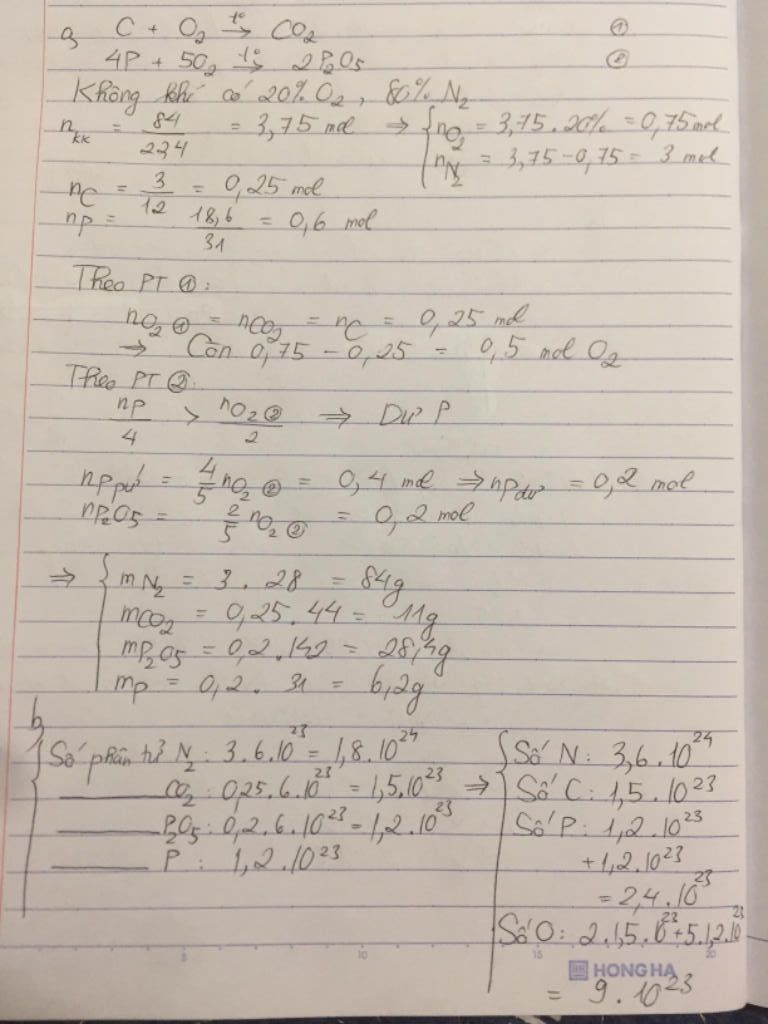 a, C + O₂ →t° CO₂ ①
4P + 5O₂ →t° 2P₂O₅ ②
Không khí có 20% O₂, 80% N₂
n_kk = 84/22,4 = 3,75 mol ⇒ { nO₂ = 3,75.20% = 0,75 mol
nN₂ = 3,75 - 0,75 = 3 mol
nC = 3/12 = 0,25 mol
nP = 18,6/31 = 0,6 mol
Theo PT ①:
nO₂ ① = nCO₂ = nC = 0,25 mol
→ Còn 0,75 - 0,25 = 0,5 mol O₂
Theo PT ②:
nP/4 > nO₂ ②/2 ⇒ Dư P
nP pứ = 4/5 nO₂ ② = 0,4 mol ⇒ nP dư = 0,2 mol
nP₂O₅ = 2/5 nO₂ ② = 0,2 mol
⇒ { mN₂ = 3.28 = 84g
mCO₂ = 0,25.44 = 11g
mP₂O₅ = 0,2.142 = 28,4g
mP = 0,2.31 = 6,2g
b,
{ Số phân tử N₂: 3.6.10²³ = 1,8.10²⁴
CO₂: 0,25.6.10²³ = 1,5.10²³ ⇒
P₂O₅: 0,2.6.10²³ = 1,2.10²³
P: 1,2.10²³
{ Số N: 3,6.10²⁴
Số C: 1,5.10²³
Số P: 1,2.10²³
+1,2.10²³
= 2,4.10²³
Số O: 2.1,5.10²³+5.1,2.10²³
5 10 15 20
HONG HA
= 9.10²³